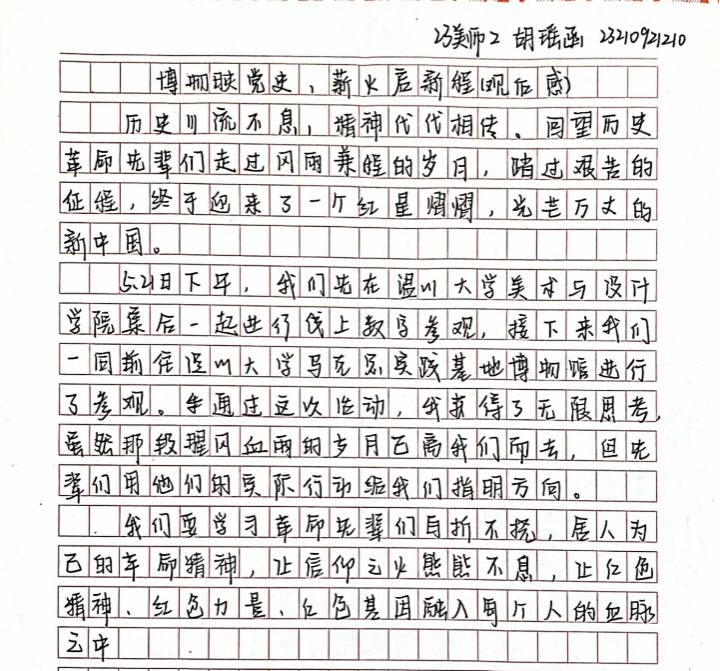 23美师2 胡瑶函 23210921210
博物映党史，薪火启新程(观后感)
历史川流不息，精神代代相传。回望历史
革命先辈们走过风雨兼程的岁月，踏过艰苦的
征程，终于迎来了一个红星熠熠，光芒万丈的
新中国。
5.21日下午，我们先在温州大学美术与设计
学院集合一起进行线上数字参观，接下来我们
一同前往温州大学马克思实践基地博物馆进行
了参观。通过这次活动，我获得了无限思考，
虽然那段腥风血雨的岁月已离我们而去，但先
辈们用他们的实际行动给我们指明方向。
我们要学习革命先辈们百折不挠，舍人为
己的革命精神，让信仰之火熊熊不息，让红色
精神、红色力量、红色基因融入每个人的血脉
之中